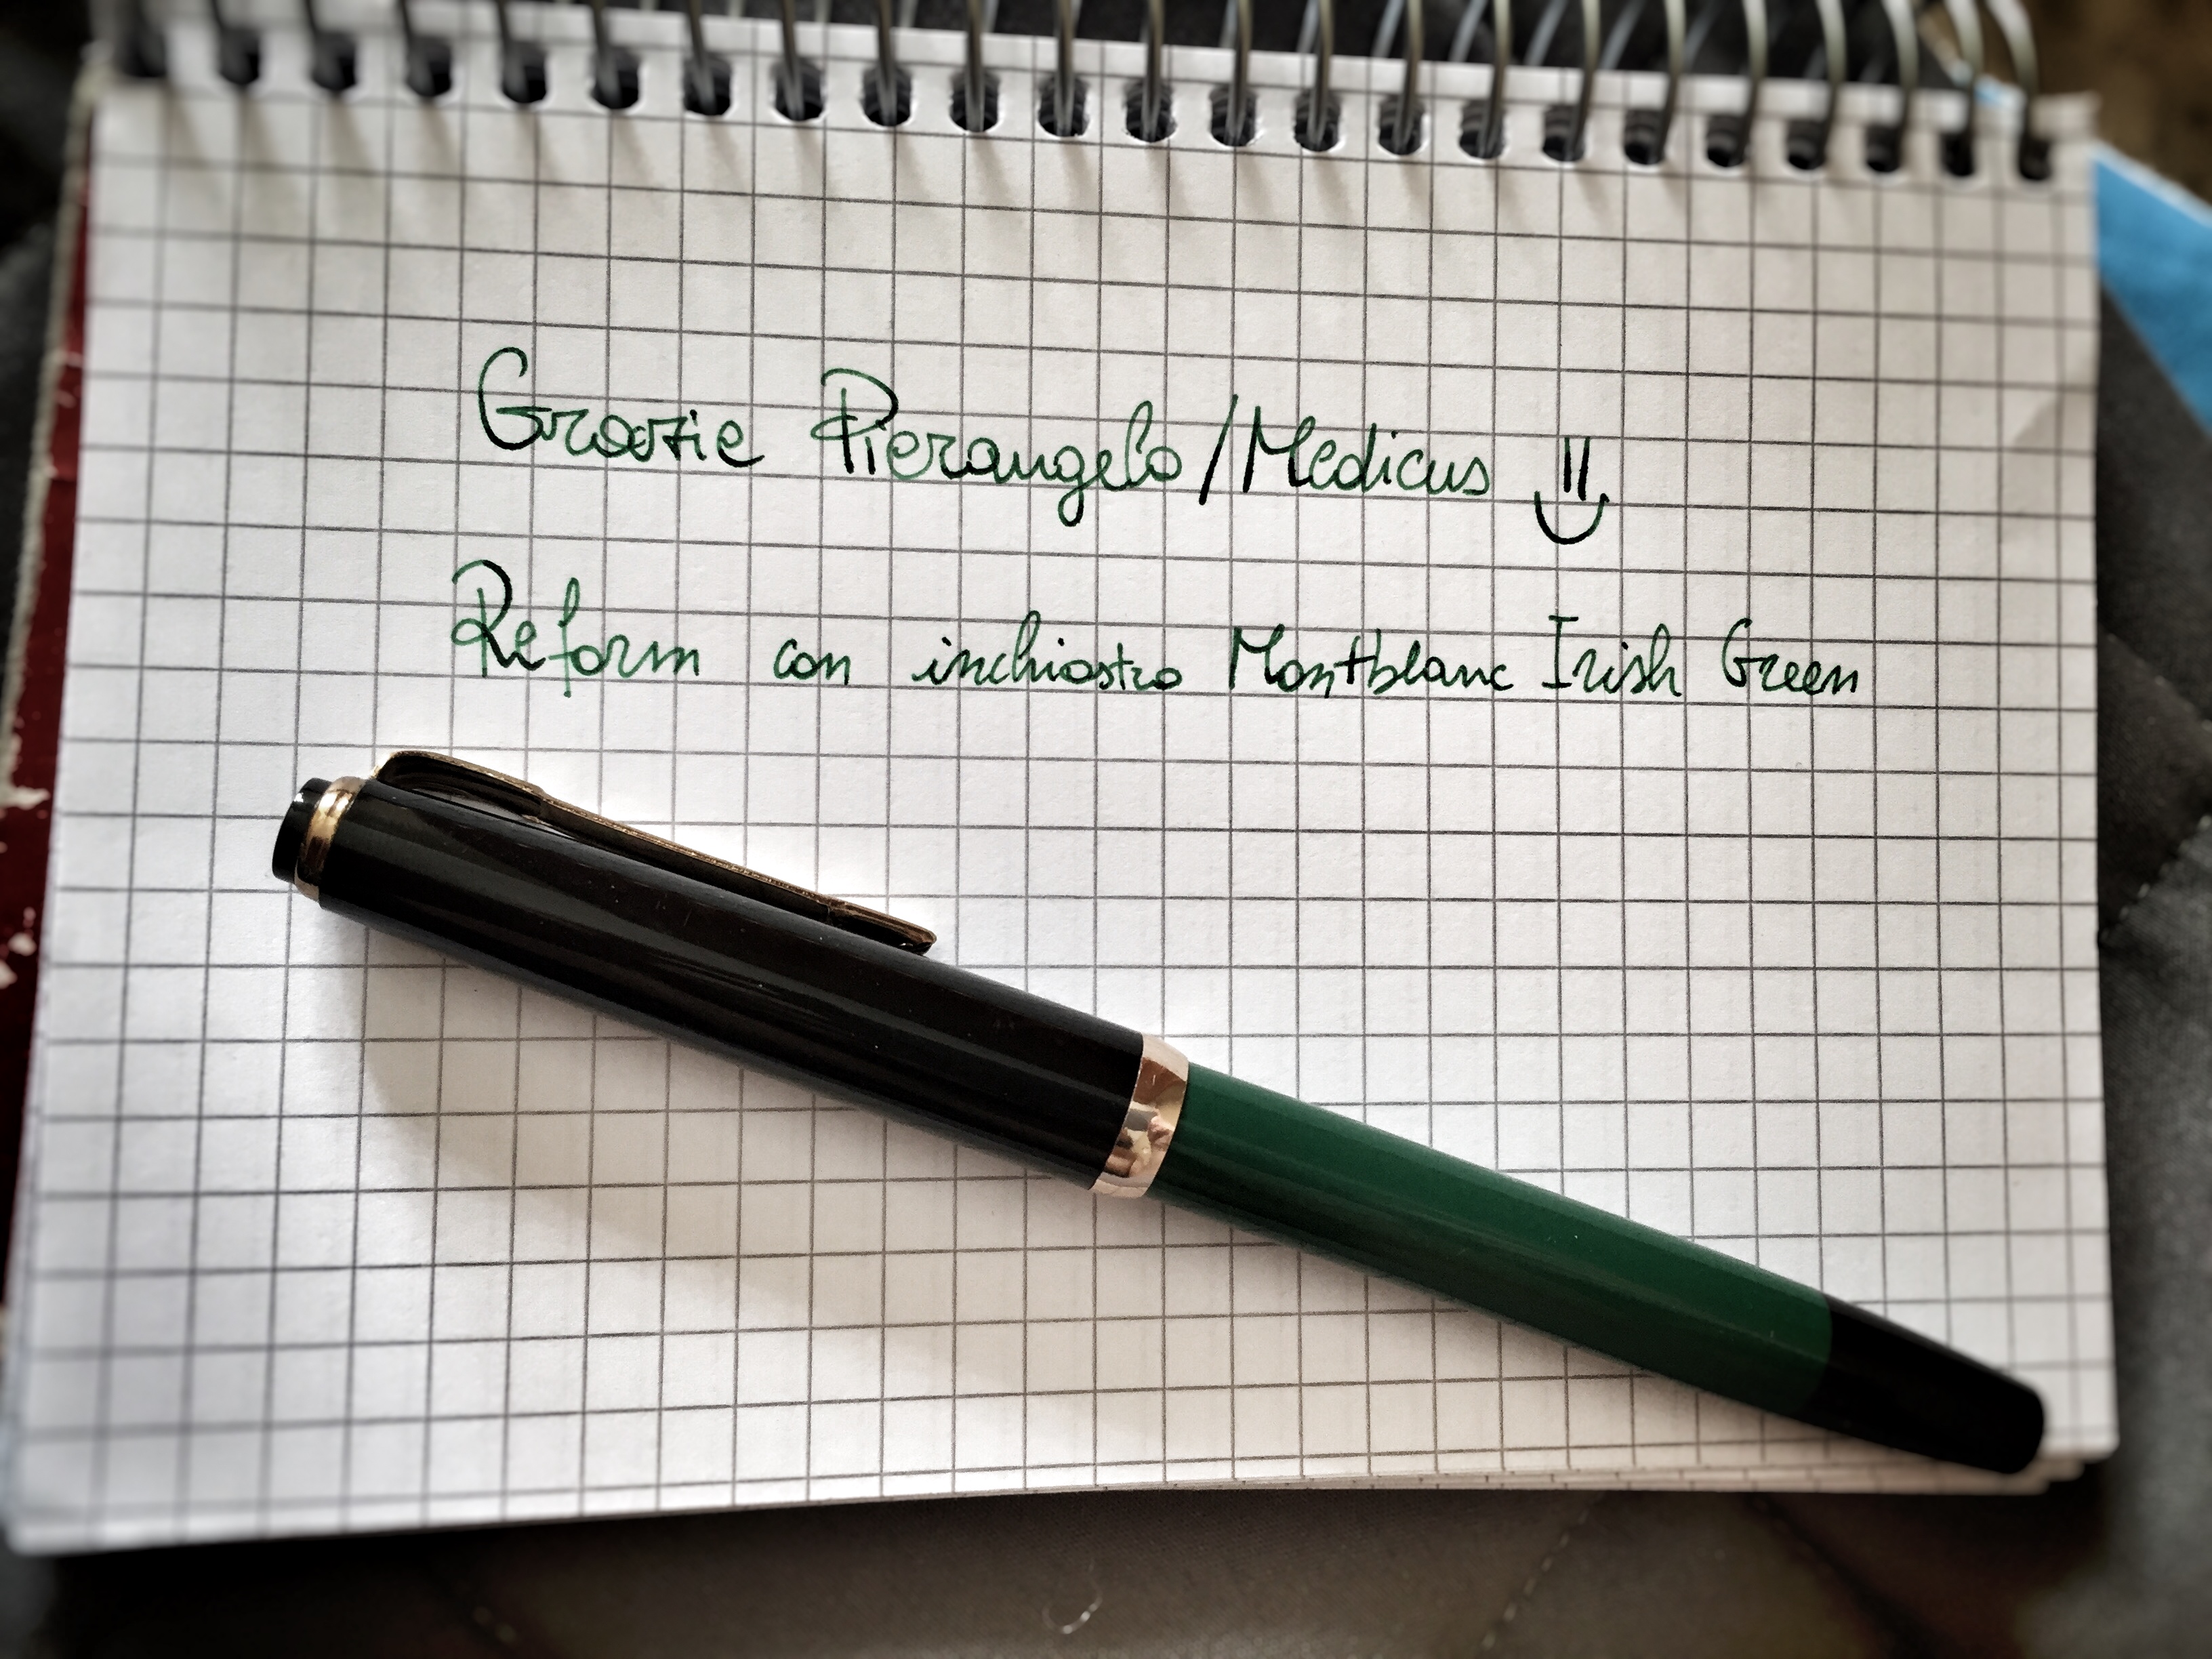 Grazie Pierangelo/Medicus =)
Reform con inchiostro Montblanc Irish Green